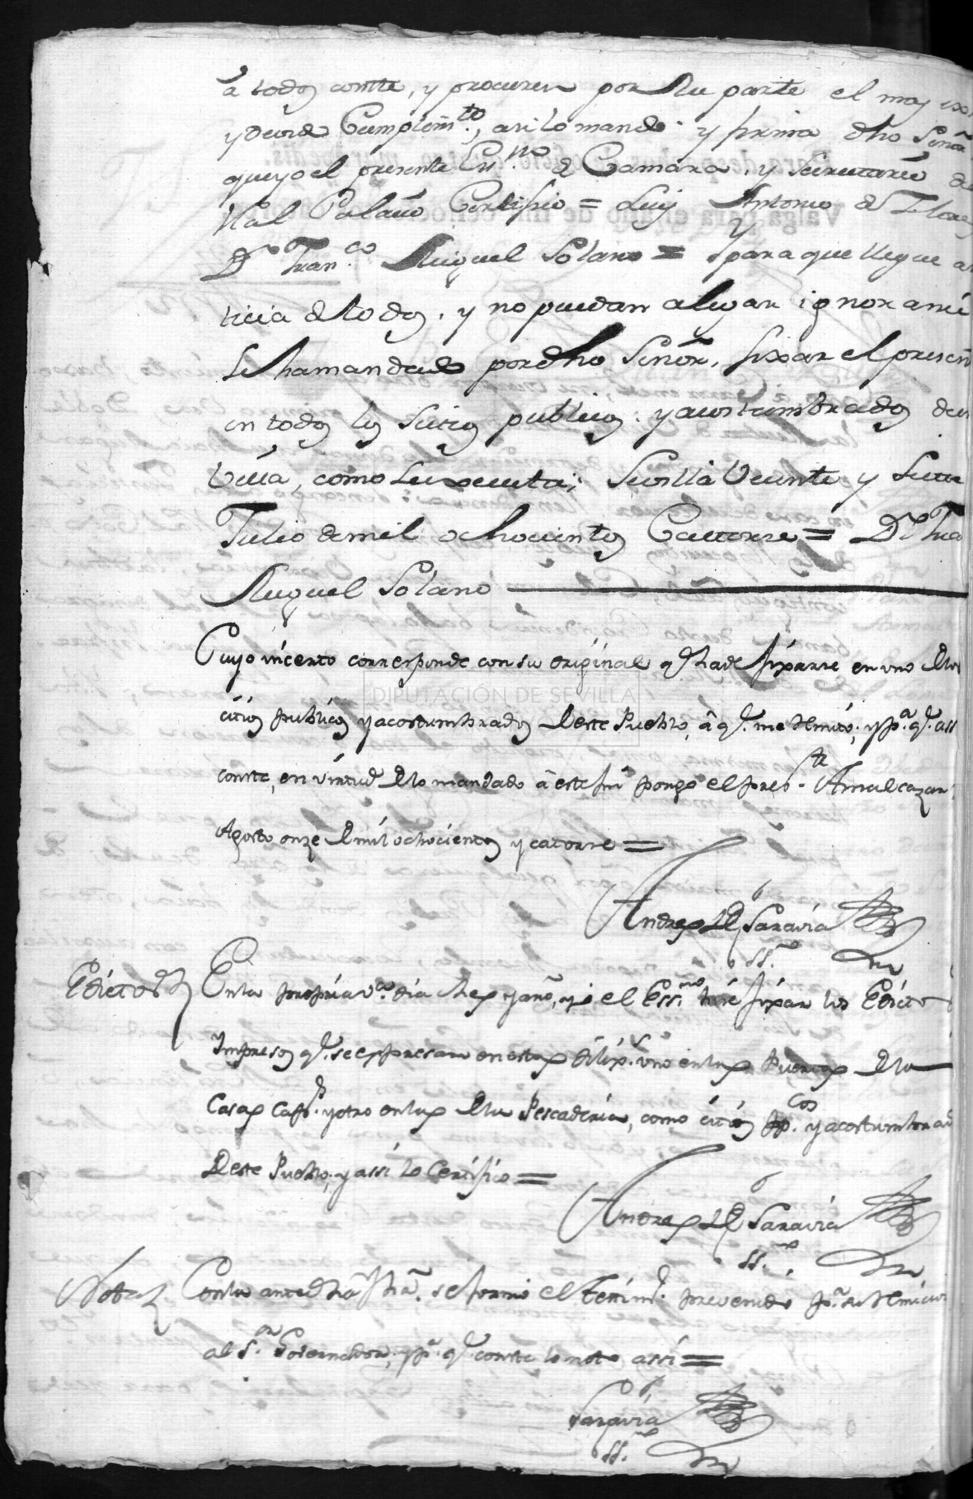 â todos conste, y procuren por su parte el mas
y devido Cumplim.to, asi lo mando y firma dho Señor
que yo el presente Es.no de Camara, y Secretario de
Real Palacio Certifico = Luis Antonio de Flores
D.n Fran.co Miguel Solano = Y para que llegue a
ticia de todos, y no puedan alegar ignoranci
se ha mandado por dho Señor, fixar el presen
en todos los sitios publicos y acostumbrados de
Villa, como se executa; Sevilla Veinte y siete
Julio de mil ochocientos Catorce = D.n Fran
Miguel Solano
Cuyo incerto corresponde con su original q.e ha de fixarse en uno de los
citios publicos y acostumbrados de este Pueblo, â q.e me remito; y p.a q.e assi
conste, en virtud de lo mandado â este fin pongo el pres.te Amalcazar
Agosto onze de mil ochocientos y catorce =
Andres Saravia
ss.no
Edictos En la propria v.a dia mes y año, yo el Ess.no hize fixar los Edictos
Impresos q.e se expresan en estas dilix.s uno en las Puertas de la
Casas Capp.s y otro en las de la Pescaderia, como citios pp.cos y acostumbrad
de este Pueblo, y assi lo Certifico =
Andres Saravia
ss.no
Nota Con la antedha fha. se formó el Testim.o prevenido p.a su remicion
al S.or Governador, y p.a q.e conste lo noto assi =
Saravia
ss.no
DIPUTACIÓN DE SEVILLA